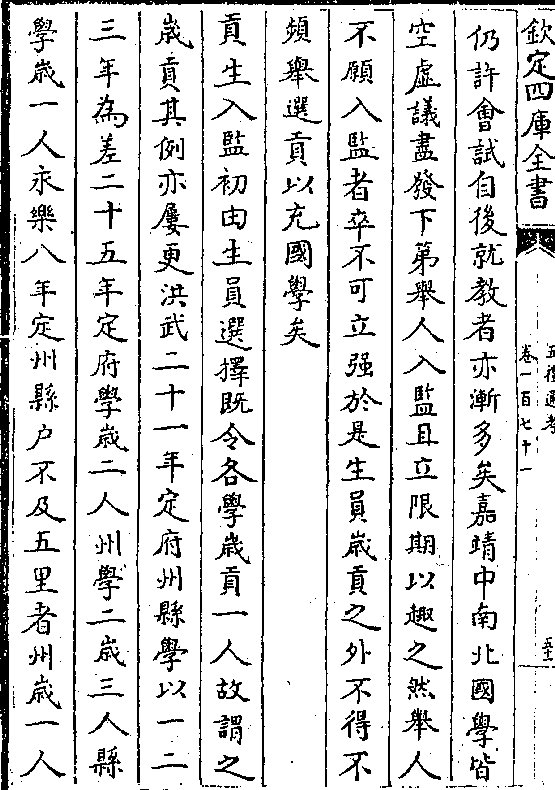 欽定四庫全書
五禮通考
卷一百七十一
仍許會試自後就教者亦漸多矣嘉靖中南北國學皆
空虛議盡發下第舉人入監且立限期以趣之然舉人
不願入監者卒不可立强於是生員歲貢之外不得不
頻舉選貢以充國學矣
貢生入監初由生員選擇既令各學歲貢一人故謂之
歲貢其例亦屢更洪武二十一年定府州縣學以一二
三年為差二十五年定府學歲二人州學二歲三人縣
學歲一人永樂八年定州縣户不及五里者州歲一人